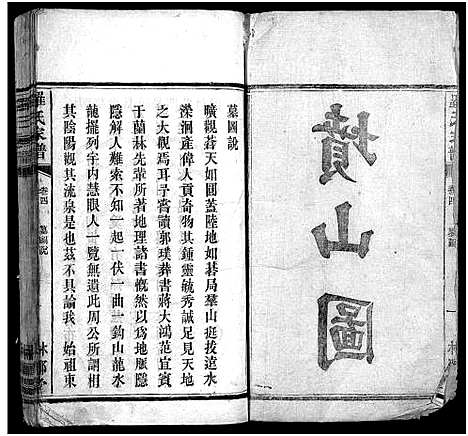 墳山圖
墓圖說
曠觀蒼天如圓蓋陸地如碁局羣山挺拔遠水
濚洄產偉人貢奇物其鍾靈毓秀誠足見天地
之大觀焉耳予嘗讀郭璞葬書蔣大鴻范宜賓
于蘭林先輩所著地理諸書慨然以為地脈隱
隱解人難索不知一起一伏一曲一鈎山龍水
龍擺列宇內慧眼人一覽無遺此周公所謂相
其陰陽觀其流泉是也茲不具論我 始祖東
羅氏家譜 卷四 墓圖說